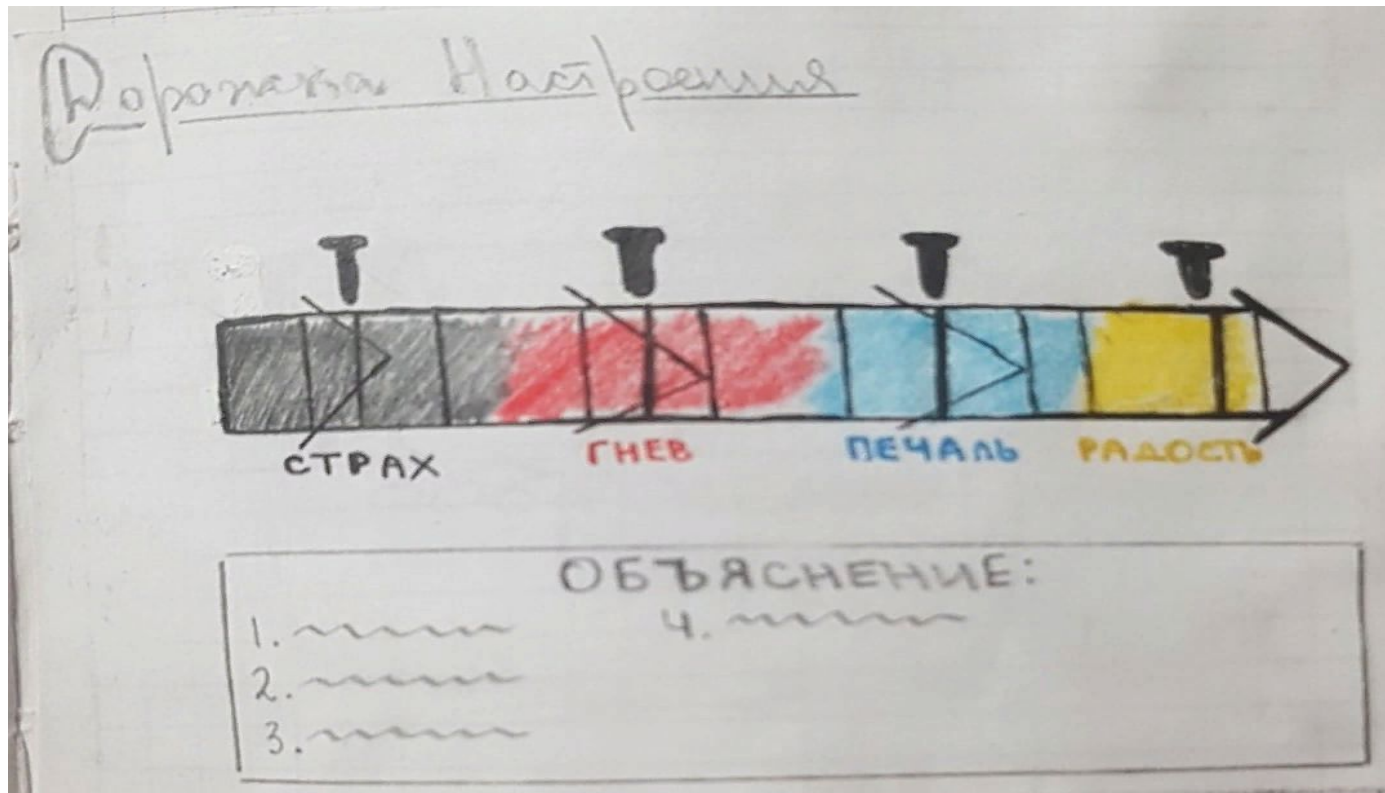 Дорожка Настроения
СТРАХ ГНЕВ ПЕЧАЛЬ РАДОСТЬ
ОБЪЯСНЕНИЕ:
1. 4.
2.
3.